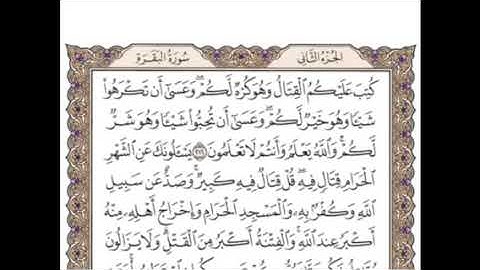 الجزء الثاني
سورة البقرة
كُتِبَ عَلَيْكُمُ الْقِتَالُ وَهُوَ كُرْهٌ لَّكُمْ ۖ وَعَسَىٰ أَن تَكْرَهُوا
شَيْئًا وَهُوَ خَيْرٌ لَّكُمْ ۖ وَعَسَىٰ أَن تُحِبُّوا شَيْئًا وَهُوَ شَرٌّ
لَّكُمْ ۗ وَاللَّهُ يَعْلَمُ وَأَنتُمْ لَا تَعْلَمُونَ ٢١٦ يَسْأَلُونَكَ عَنِ الشَّهْرِ
الْحَرَامِ قِتَالٍ فِيهِ ۖ قُلْ قِتَالٌ فِيهِ كَبِيرٌ ۖ وَصَدٌّ عَن سَبِيلِ
اللَّهِ وَكُفْرٌ بِهِ وَالْمَسْجِدِ الْحَرَامِ وَإِخْرَاجُ أَهْلِهِ مِنْهُ
أَكْبَرُ عِندَ اللَّهِ ۚ وَالْفِتْنَةُ أَكْبَرُ مِنَ الْقَتْلِ ۗ وَلَا يَزَالُونَ